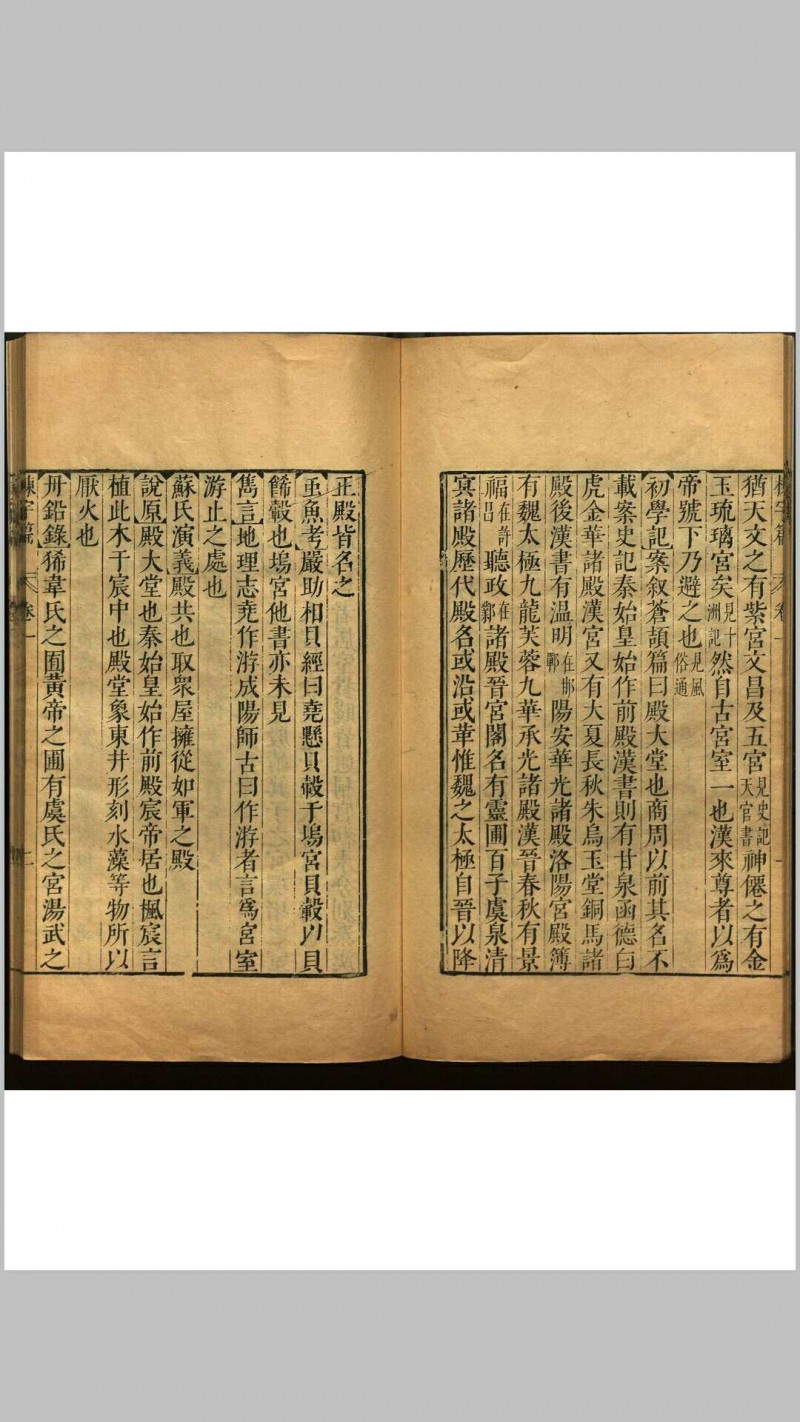 猶天文之有紫宮文昌及五宮見史記天官書神僊之有金
玉琉璃宮矣見十洲記然自古宮室一也漢來尊者以爲
帝號下乃避之也見風俗通
初學記案叙蒼頡篇曰殿大堂也商周以前其名不
載案史記秦始皇始作前殿漢書則有甘泉函德白
虎金華諸殿漢宮又有大夏長秋朱鳥玉堂銅馬諸
殿後漢書有温明在邯鄲陽安華光諸殿洛陽宮殿簿
有魏太極九龍芙蓉九華承光諸殿漢晉春秋有景
福在許昌聽政在鄴諸殿晉宮閣名有靈圃百子虞泉清
寞諸殿歷代殿名或沿或革惟魏之太極自晉以降
正殿皆名之
䖝魚考嚴助相貝經曰堯懸貝轂于塢宮貝轂以貝
餙轂也塢宮他書亦未見
雋言地理志堯作游成陽師古曰作游者言爲宮室
游止之處也
蘇氏演義殿共也取衆屋擁從如軍之殿
說原殿大堂也秦始皇始作前殿宸帝居也楓宸言
植此木于宸中也殿堂象東井形刻水藻等物所以
厭火也
丹鉛錄狶韋氏之囿黃帝之圃有虞氏之宮湯武之
卷一